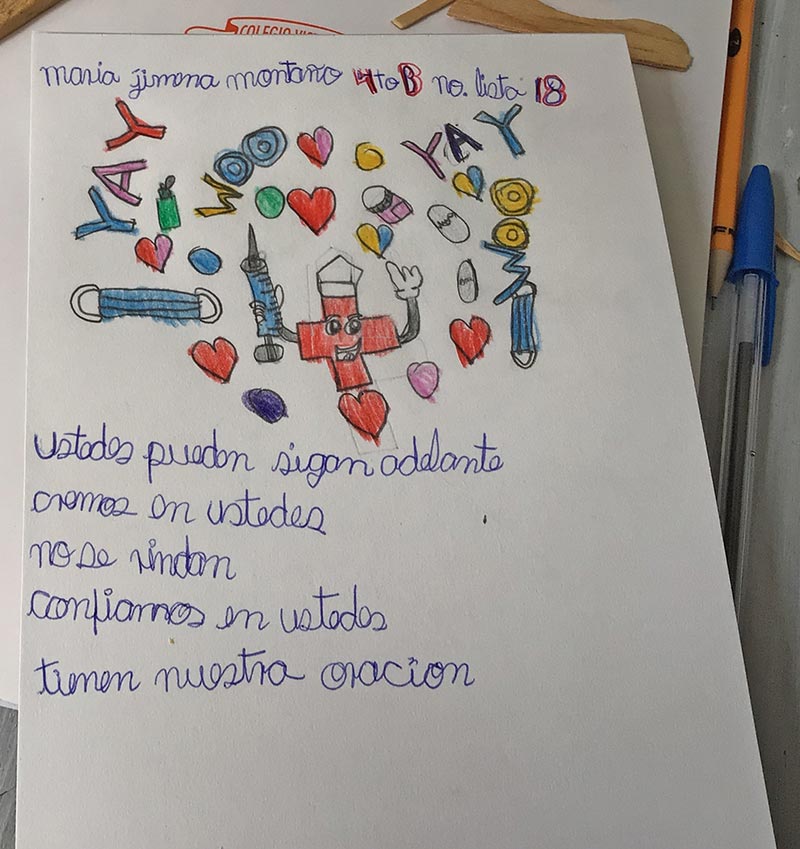 COLEGIO VIC
maria jimena montaño 4to B no. lista 18
YAY
WOO
YAY
WOO
ustedes pueden sigan adelante
cremos en ustedes
no se rindan
confiamos en ustedes
tienen nuestra oracion